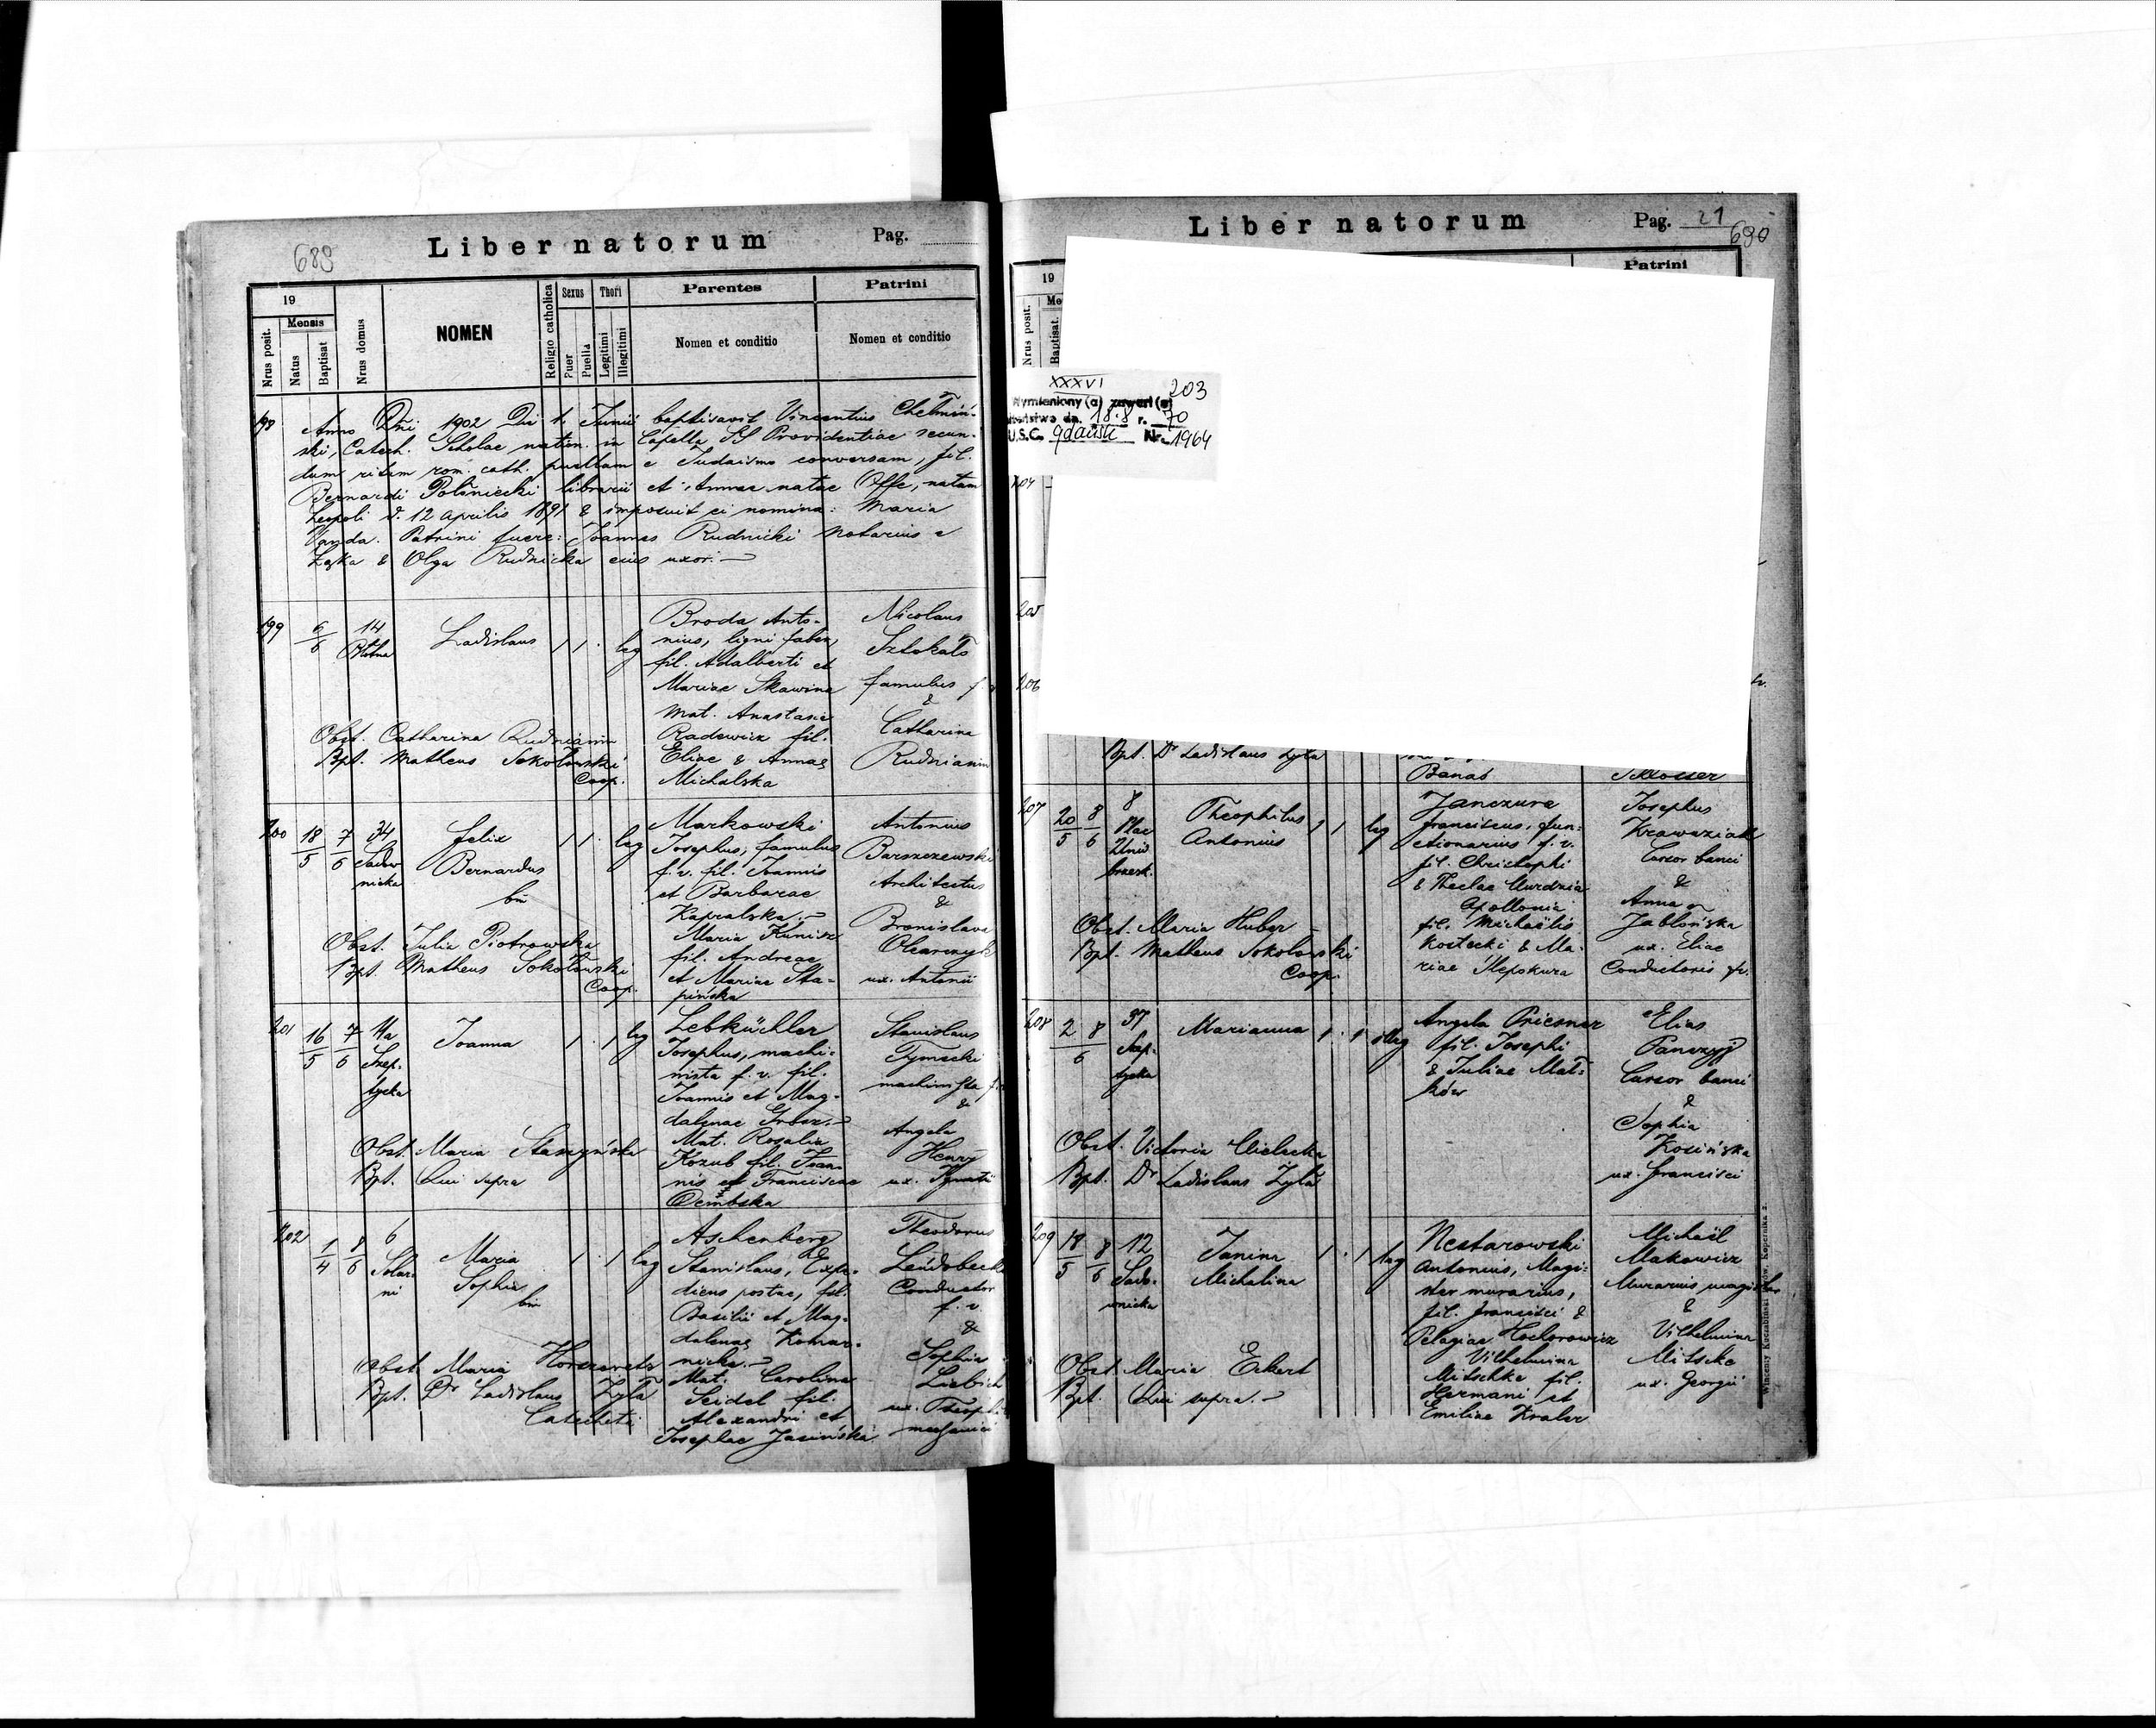 689
Liber natorum
Pag.
19
Mensis
Nrus posit.
Natus
Baptisat
Nrus domus
NOMEN
Religio catholica
Sexus
Puer
Puella
Thori
Legitimi
Illegitimi
Parentes
Nomen et conditio
Patrini
Nomen et conditio
198
Anno Dni 1902 Die 1. Junii baptisavit Vincentius Chełmiń-
ski, Catech. Scholae in Capella SS Providentiae secun-
dum ritum rom. cath. puellam e Judaismo conversam, fil.
Bernardi Połoniecki librarii et Annae natae Offe, natam
Leopoli d. 12 Aprilis 1891 & imposuit ei nomina: Maria
Vanda. Patrini fuere: Joannes Rudnicki Notarius e
& Olga Rudnicka eius uxor.
199
6
6
14
Ladislaus
1 1 leg
Broda Anto-
nius, ligni faber,
fil. Adalberti et
Mariae Skawina
Mat. Anastasia
Radewicz fil.
Eliae & Annae
Michalska
Nicolaus
famulus
&
Catharina
Rudnianin
Obst. Catharina Rudnianin
Bpt. Matheus Sokołowski
Coop.
200
18
5
7
6
34
Sadow
nicka
Felix
Bernardus
bin
1 1 leg
Markowski
Josephus, famulus
f. v. fil. Joannis
et Barbarae
Kapralska.
Maria Kunisz
fil. Andreae
et Mariae Sta-
pińska
Antonius
Barszczewski
Architectus
&
Bronislava
Olearczyk
ux. Antonii
Obst. Julia Piotrowska
Bpt. Matheus Sokołowski
Coop.
201
16
5
7
6
Szep-
tycka
Joanna
1 1 leg
Lebküchler
Josephus, machi-
nista f. v. fil.
Joannis et Mag-
dalenae
Mat. Rosalia
Kozub fil. Joan-
nis et Franciscae
Dembska
Stanislaus
Tymecki
machinista
&
Angela
Henry
ux. Ignatii
Obst. Maria Staszyńska
Bpt. Qui supra
202
1
4
8
6
6
Solar-
ni
Maria
Sophia
bin
1 1 leg
Aschenberg
Stanislaus, Expe-
diens postae, fil.
Basilii et Mag-
dalenae Komar-
nicka.
Mat. Carolina
Seidel fil.
Alexandri et
Josephae Jasińska
Theodorus
Conductor
f. v.
&
Sophia
Liebich
ux.
mechanici
Obst. Maria
Bpt. Dr Ladislaus Żyła
Catecheta
Liber natorum
Pag. 21
690
19
Nrus posit.
Baptisat.
Patrini
XXXVI 203
Wymieniony (a) zawarł (a)
18.8 r. 70
U.S.C. Gdańsk Nr. 1964
204
205
206
Bpt. Dr Ladislaus Żyła
Banaś
Schlosser
207
20
5
8
6
8
Plac
Unii
brzesk.
Theophilus
Antonius
1 1 leg
Janczura
Franciscus, fun-
ctionarius f. v.
fil. Christophi
& Theclae Murdzia
Apollonia
fil. Michaëlis
Kostecki & Ma-
riae Ślepokura
Josephus
Krawaziak
Cursor banci
&
Anna
Jabłońska
ux. Eliae
Conductoris
Obst. Maria Huber
Bpt. Matheus Sokołowski
Coop.
208
2
8
6
37
Szep-
tycka
Marianna
1 1 illeg
Angela Priesner
fil. Josephi
& Juliae Mat-
ków
Elias
Panczyj
Cursor banci
&
Sophia
Kosińska
ux. Francisci
Obst. Victoria Wielecka
Bpt. Dr Ladislaus Żyła
209
19
5
8
6
12
Sado-
wnicka
Janina
Michalina
1 1 leg
Nestarowski
Antonius, Magi-
ster murarius,
fil. Francisci &
Pelagiae Hodorowicz
Vilhelmina
Mitschka fil.
Hermani et
Emiliae Kraler
Michaël
Makowicz
Murarius magister
&
Vilhelmina
Mitschke
ux. Georgii
Obst. Maria Eckert
Bpt. Qui supra.